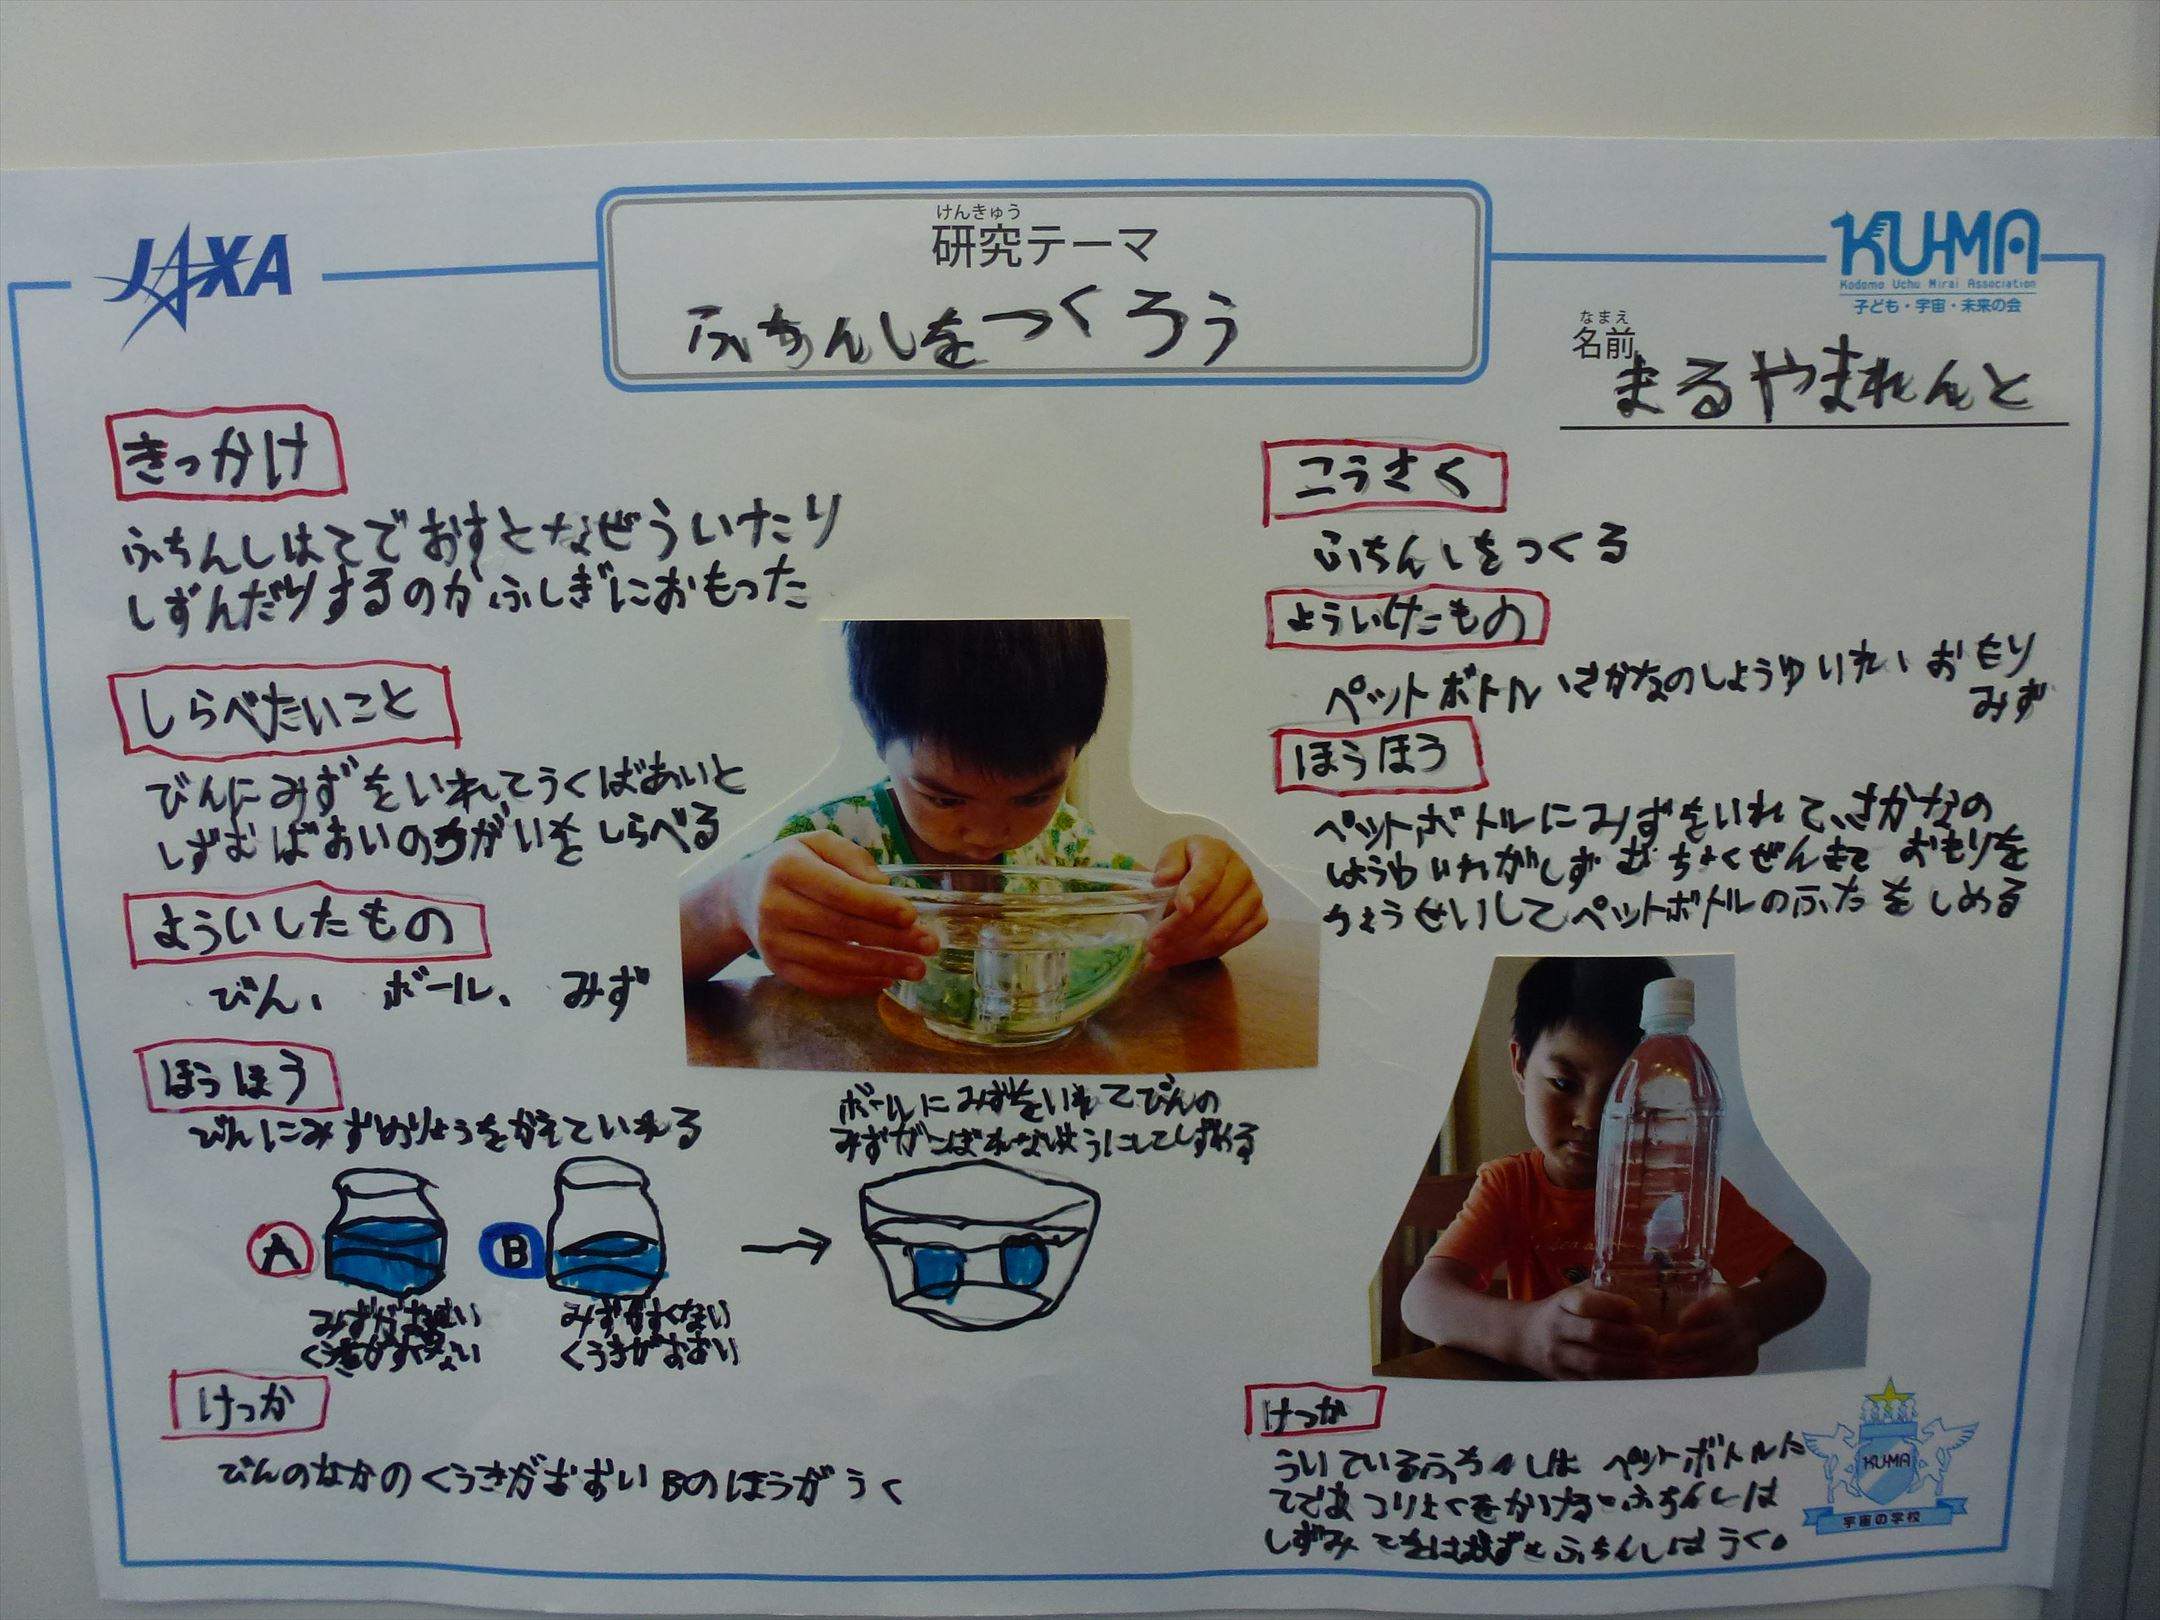 JAXA
けんきゅう
研究テーマ
ふちんしをつくろう
KU-MA
Kodomo Uchu Mirai Association
子ども・宇宙・未来の会
なまえ
名前
まるやまれんと
きっかけ
ふちんしはてでおすとなぜういたり
しずんだりするのかふしぎにおもった
しらべたいこと
びんにみずをいれてうくばあいと
しずむばあいのちがいをしらべる
よういしたもの
びん、ボール、みず
ほうほう
びんにみずのりょうをかえていれる
A
B
みずがおおい
くうきがすくない
みずがすくない
くうきがおおい
ボールにみずをいれてびんの
みずがこぼれないようにしてしずめる
けっか
びんのなかのくうきがおおいBのほうがうく
こうさく
ふちんしをつくる
よういしたもの
ペットボトル、さかなのしょうゆいれ、おもり
みず
ほうほう
ペットボトルにみずをいれて、さかなの
しょうゆいれがしずむちょくぜんまでおもりを
ちょうせいしてペットボトルのふたをしめる
けっか
ういているふちんしはペットボトルに
てであつりょくをかけるとふちんしは
しずみてをはなすとふちんしはうく。
KU-MA
宇宙の学校